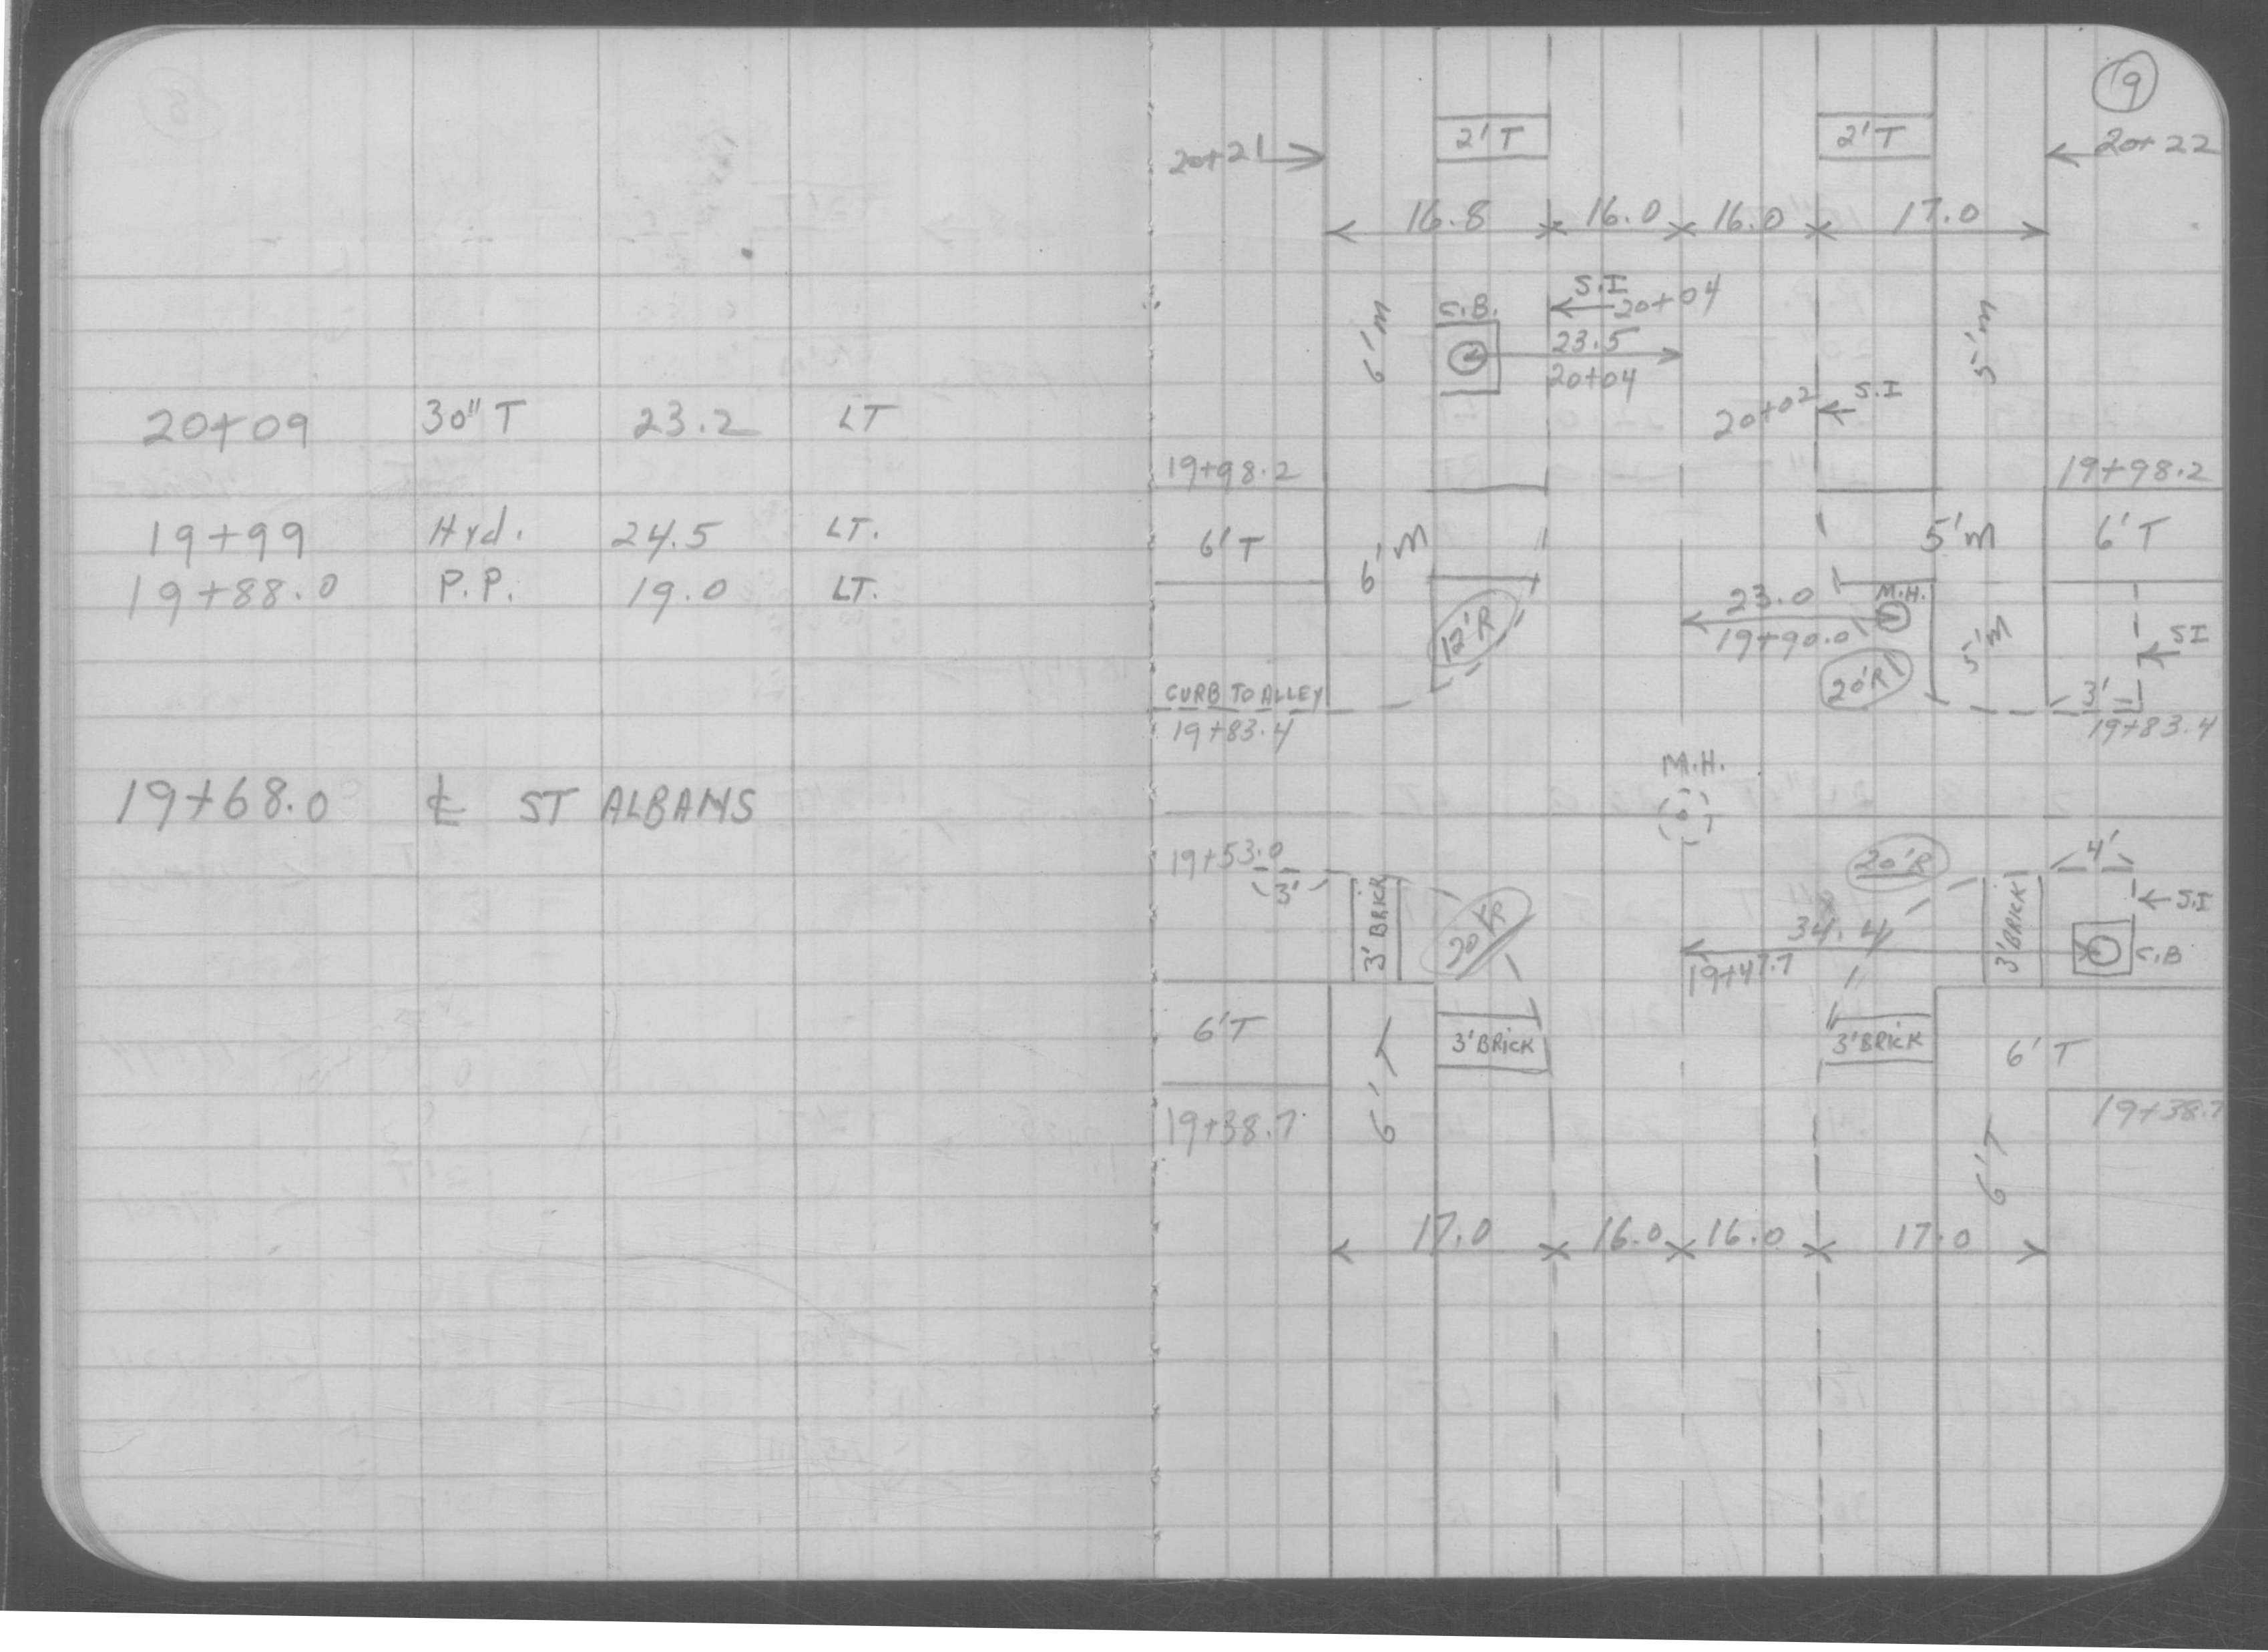 20+09 30" T 23.2 LT
19+99 Hyd. 24.5 LT.
19+88.0 P.P. 19.0 LT.
19+68.0 ℄ ST ALBANS
9
20+21 2'T 2'T 20+22
16.8 16.0 16.0 17.0
S.I
C.B. 20+04
6'M 23.5 5'M
20+04
20+02 S.I
19+98.2 19+98.2
6'T 6'M 5'M 6'T
23.0 M.H.
12'R 19+90.0 5'M S.I
20'R
CURB TO ALLEY 3'
19+83.4 19+83.4
M.H.
19+53.0 20'R 4'
3' 3' BRICK 20'R 3' BRICK S.I
34.4
19+47.7 C.B
6'T 6'T 3' BRICK 3' BRICK 6'T
19+38.7 19+38.7
6'T
17.0 16.0 16.0 17.0